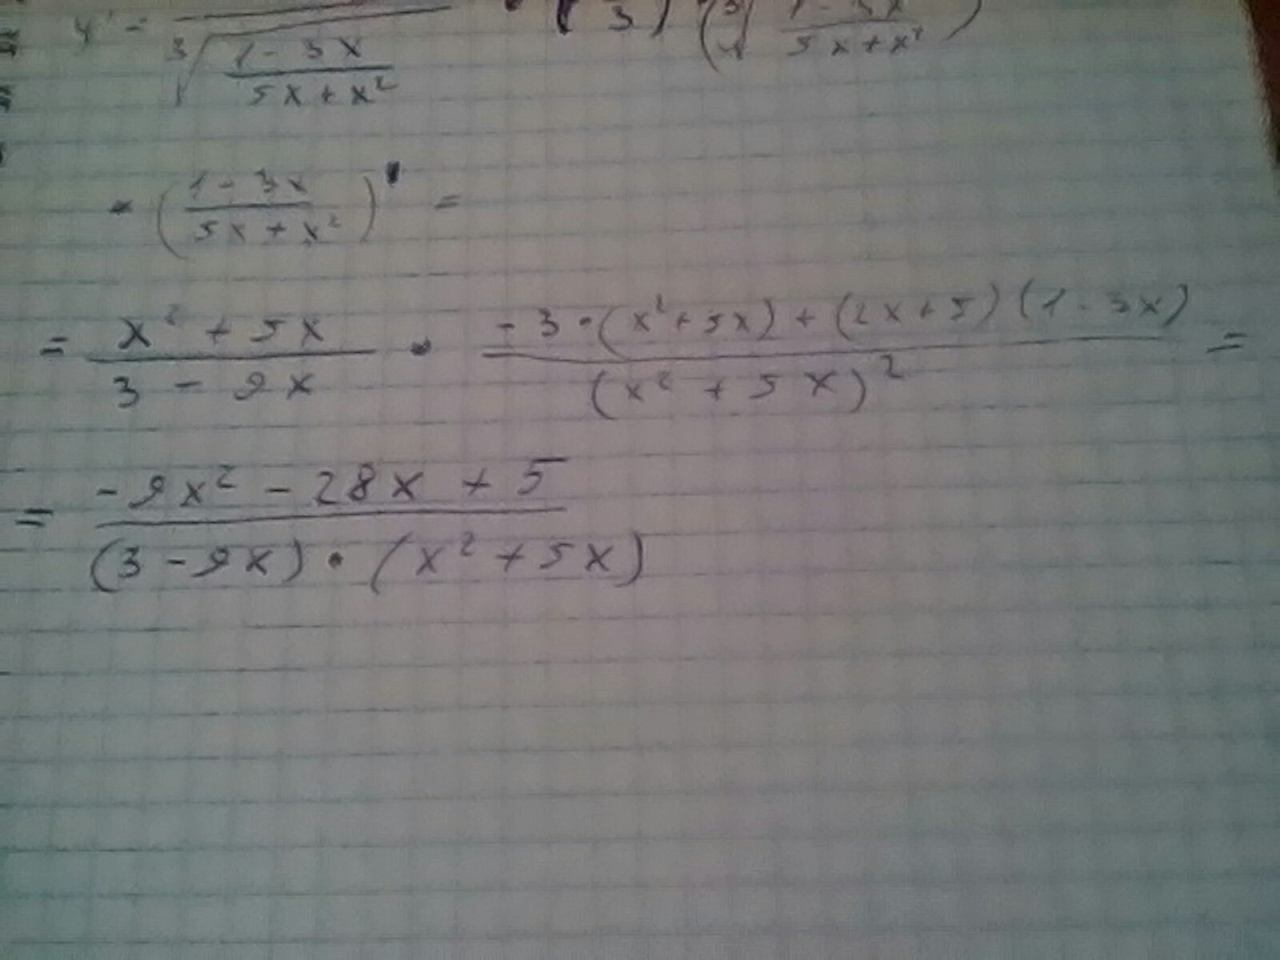 y' = 1/∛((1 - 3x)/(5x + x²)) · (1/3) · (∛((1 - 3x)/(5x + x²)))
· ((1 - 3x)/(5x + x²))' =
= (x² + 5x)/(3 - 9x) · (-3·(x² + 5x) + (2x + 5)(1 - 3x))/(x² + 5x)² =
= (-9x² - 28x + 5)/((3 - 9x)·(x² + 5x))